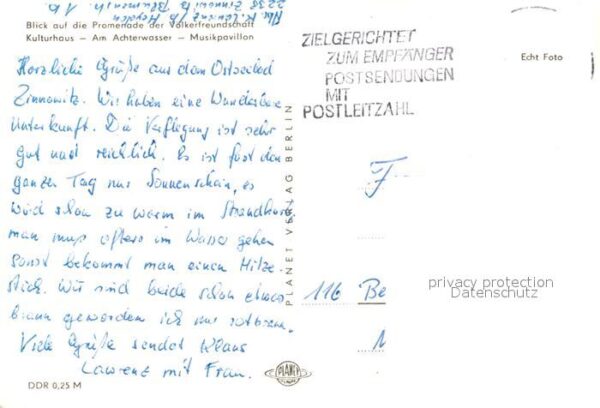 Abs. K. Lenz
2238 Zinnowitz Blumenstr. 1b
Blick auf die Promenade der Völkerfreundschaft
Kulturhaus – Am Achterwasser – Musikpavillon
Herzliche Grüße aus dem Ostseebad
Zinnowitz. Wir haben eine Wunderbare
Unterkunft. Die Verflegung ist sehr
gut und reichlich. Es ist fast den
ganzen Tag nur Sonnenschein, es
wird schon zu warm im Strandkorb,
man muß öfters im Wasser gehen
sonst bekommt man einen Hitze-
stich. Wir sind beide schon etwas
braun geworden ich nur rotbraun.
Viele Grüße sendet Klaus
Lawrenz mit Frau.
DDR 0,25 M
PLANET VERLAG BERLIN
PLANET
ZIELGERICHTET
ZUM EMPFÄNGER
POSTSENDUNGEN
MIT
POSTLEITZAHL
Echt Foto
F
116 Be
1
privacy protection
Datenschutz